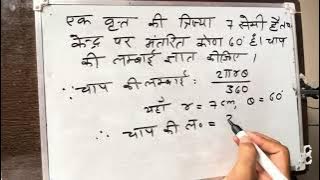 एक वृत्त की त्रिज्या 7 सेमी है तथा
केन्द्र पर अंतरित कोण 60° है। चाप
की लम्बाई ज्ञात कीजिए।
∵ चाप की लम्बाई = 2πrθ / 360
यहाँ r = 7cm, θ = 60°
∴ चाप की ल० = 2